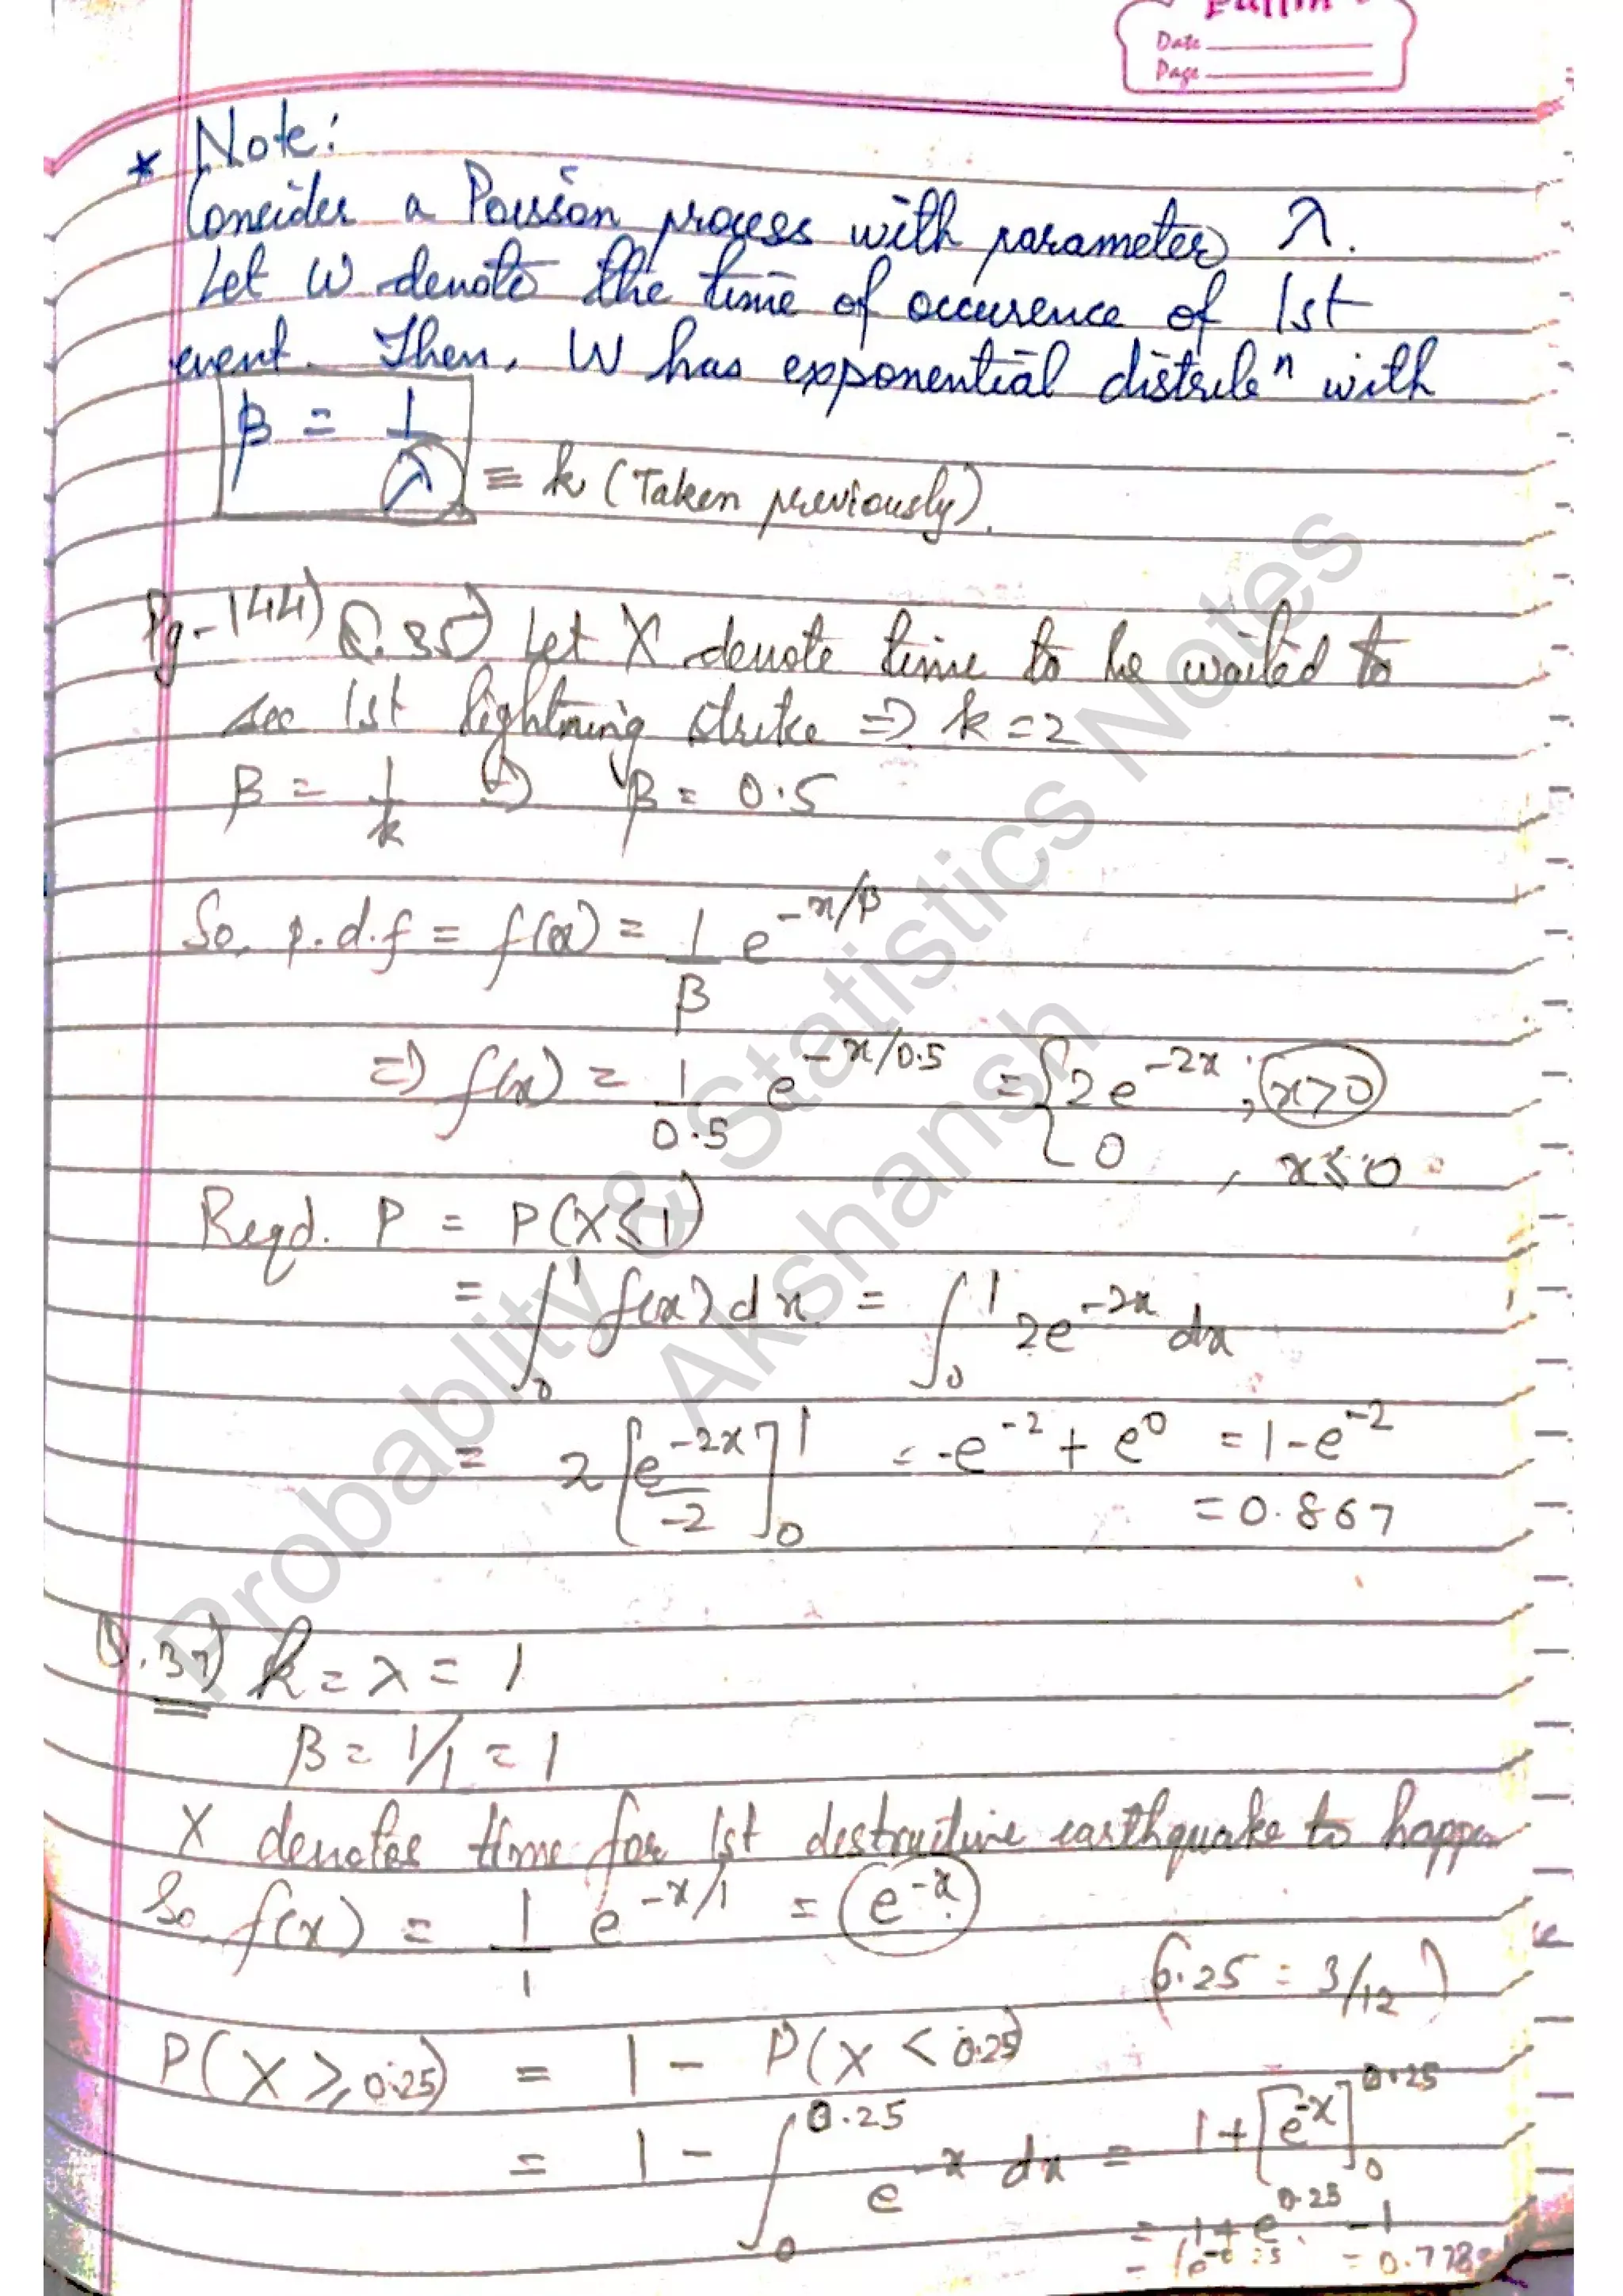 Date
Page
* Note:
Consider a Poisson process with parameter λ.
Let W denote the time of occurence of 1st
event. Then, W has exponential distribⁿ with
β = 1/λ ≡ k (Taken previously).
Pg-144) Q.35) Let X denote time to be waited to
see 1st lightning strike => k = 2
β = 1/k => β = 0.5
So, p.d.f = f(x) = 1/β e^{-x/β}
=> f(x) = 1/0.5 e^{-x/0.5} = { 2e^{-2x} ; x>0
0 , x≤0
Reqd. P = P(X≤1)
= ∫_0^1 f(x) dx = ∫_0^1 2e^{-2x} dx
= 2 [e^{-2x}/-2]_0^1 = -e^{-2} + e^0 = 1-e^{-2}
= 0.867
Q.37) k = λ = 1
β = 1/1 = 1
X denotes time for 1st destructive earthquake to happen
So f(x) = 1/1 e^{-x/1} = e^{-x}
(0.25 = 3/12)
P(X ≥ 0.25) = 1 - P(X < 0.25)
= 1 - ∫_0^{0.25} e^{-x} dx = 1+[e^{-x}]_0^{0.25}
= 1+e^{0.25} -1
= 0.778
Probablity & Statistics Notes
Akshansh